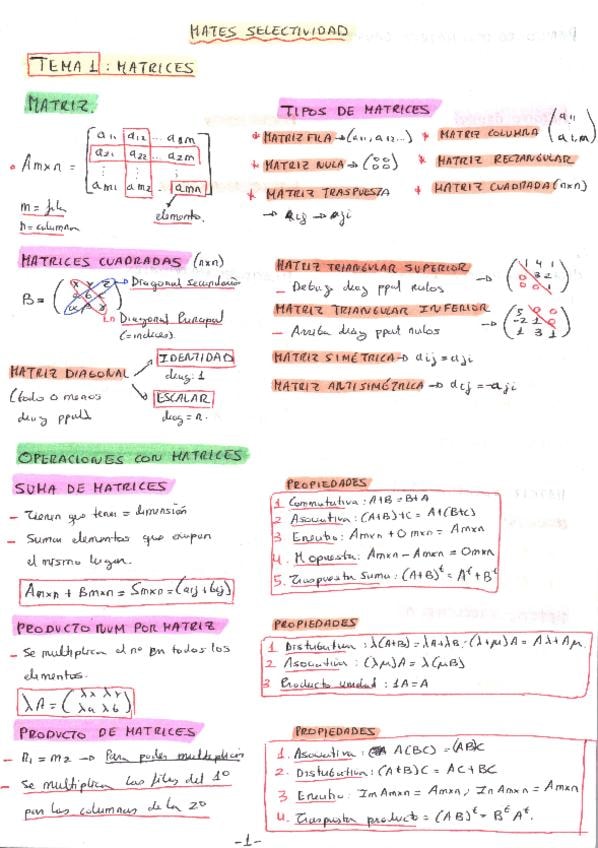 MATES SELECTIVIDAD
TEMA 1: MATRICES
MATRIZ.
• Amxn = [a11 a12 ... a1m
a21 a22 ... a2m
⋮ ⋮ ⋮
am1 am2 ... amn]
elemento.
m = fila
n = columna
TIPOS DE MATRICES
* MATRIZ FILA → (a11, a12...)
* MATRIZ COLUMNA
* MATRIZ NULA → (0 0
0 0)
* MATRIZ RECTANGULAR
* MATRIZ TRASPUESTA
→ aij → aji
* MATRIZ CUADRADA (nxn)
MATRICES CUADRADAS (nxn)
B =
Diagonal secundaria
Diagonal Principal
(= indices).
MATRIZ DIAGONAL
(todo 0 menos
diag ppal)
IDENTIDAD
diag: 1
ESCALAR
diag = n.
MATRIZ TRIANGULAR SUPERIOR
- Debajo diag ppal nulos → (1 4 1
0 3 2
0 0 1)
MATRIZ TRIANGULAR INFERIOR
- Arriba diag ppal nulos → (5 0 0
-2 1 0
1 3 1)
MATRIZ SIMÉTRICA → aij = aji
MATRIZ ANTISIMÉTRICA → aij = -aji
OPERACIONES CON MATRICES
SUMA DE MATRICES
- Tienen que tener = dimensión
- Suman elementos que ocupan
el mismo lugar.
Amxn + Bmxn = Smxn = (aij + bij)
PROPIEDADES
1 Conmutativa: A+B = B+A
2 Asociativa: (A+B)+C = A+(B+C)
3 Eneutro: Amxn + 0mxn = Amxn
4. M opuesta: Amxn - Amxn = 0mxn
5. Traspuesta Suma: (A+B)^t = A^t + B^t
PRODUCTO NUM POR MATRIZ
- Se multiplica el nº en todos los
elementos.
λA = (λx λy
λa λb)
PROPIEDADES
1 Distributiva: λ(A+B) = λA+λB · (λ+μ)A = Aλ+Aμ.
2 Asociativa: (λμ)A = λ(μB)
3 Producto unidad: 1A = A
PRODUCTO DE MATRICES
- n1 = m2 → Para poder multiplicar
- Se multiplica las filas del 1º
por las columnas de la 2º
PROPIEDADES
1. Asociativa: A(BC) = (AB)C
2. Distributiva: (A+B)C = AC+BC
3 Eneutro: Im Amxn = Amxn; In Amxn = Amxn
4. Traspuesta producto = (AB)^t = B^t A^t.
-1-